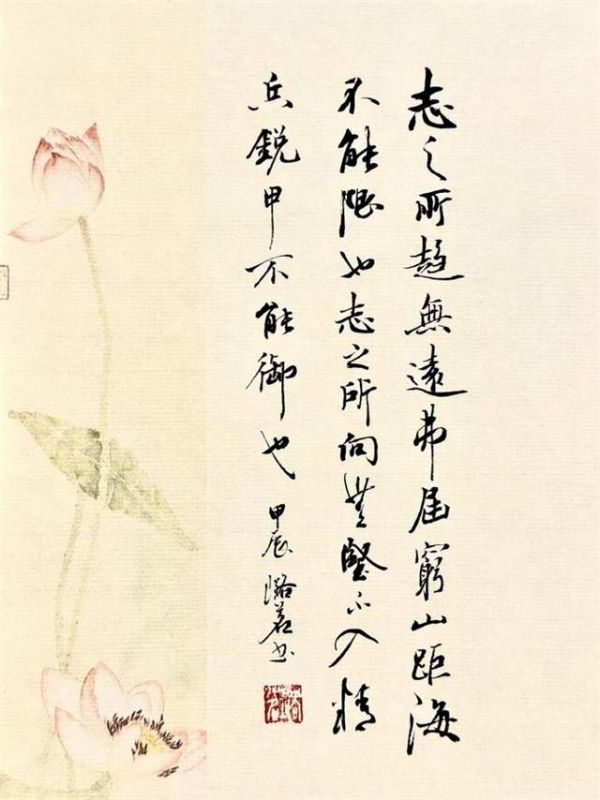 志之所趨無遠弗届窮山距海
不能限也志之所向無堅不入精
兵鋭甲不能御也
甲辰 书